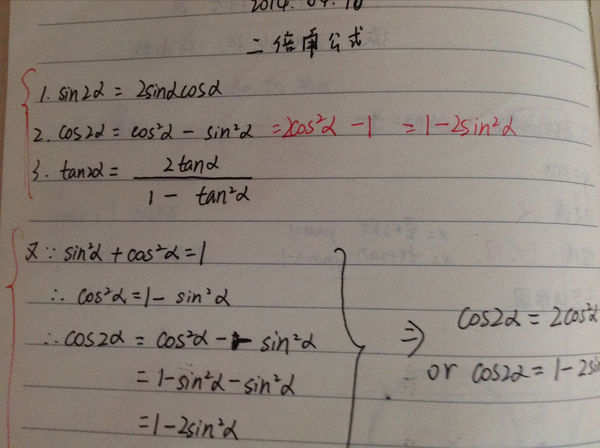 2014. 04. 10
二倍角公式
1. sin2α = 2sinαcosα
2. cos2α = cos²α - sin²α = 2cos²α - 1 = 1 - 2sin²α
3. tan2α = 2tanα / 1 - tan²α
又∵ sin²α + cos²α = 1
∴ cos²α = 1 - sin²α
∴ cos2α = cos²α - sin²α
= 1 - sin²α - sin²α
= 1 - 2sin²α
⇒ cos2α = 2cos²α
or cos2α = 1 - 2sin